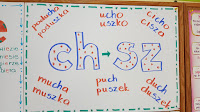 poducha
poduszka
ucho
uszko
cicho
cisza
ch → sz
mucha
muszka
puch
puszek
duch
duszek